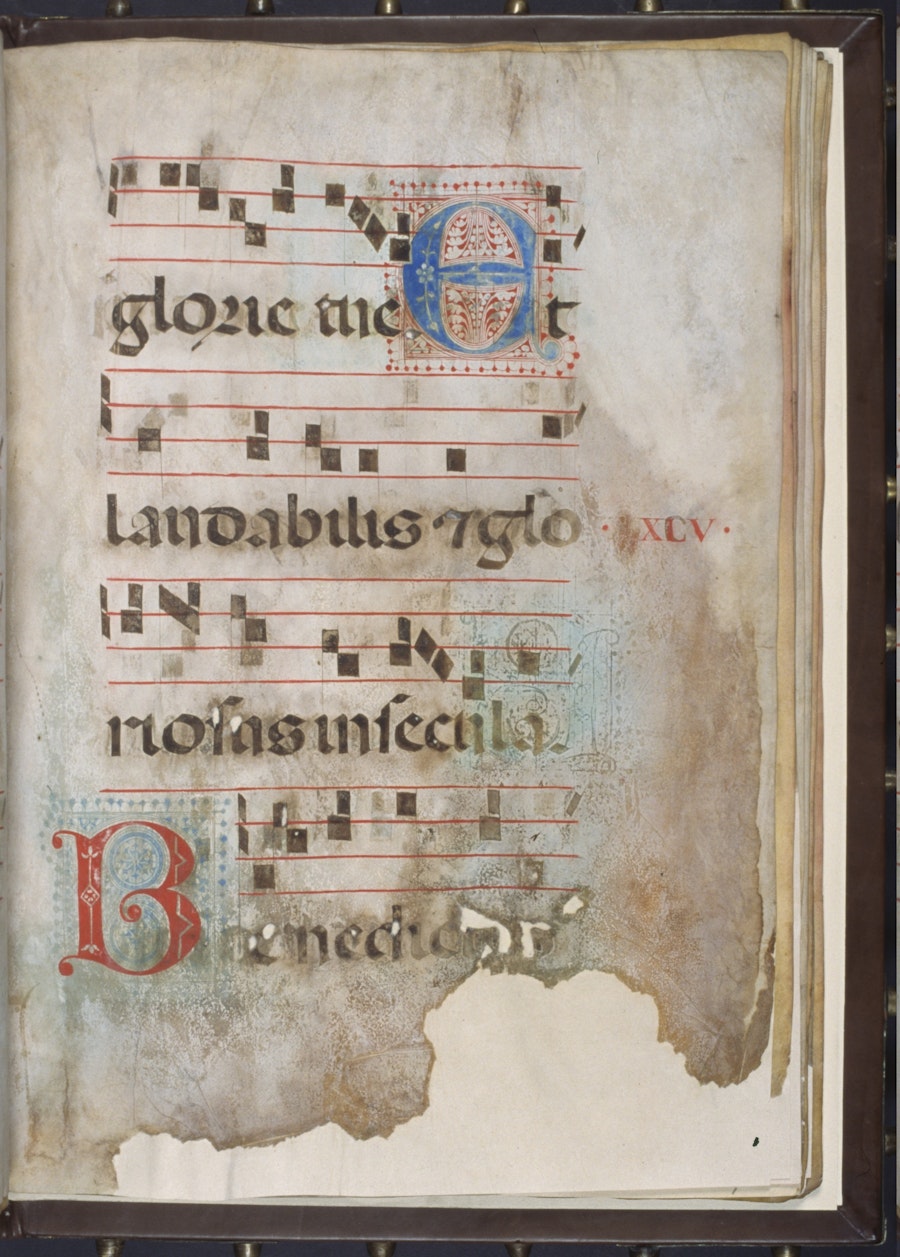 glorie tue. Et
laudabilis ⁊ glo
· LXCV ·
rioſus in ſecula.
Benedic